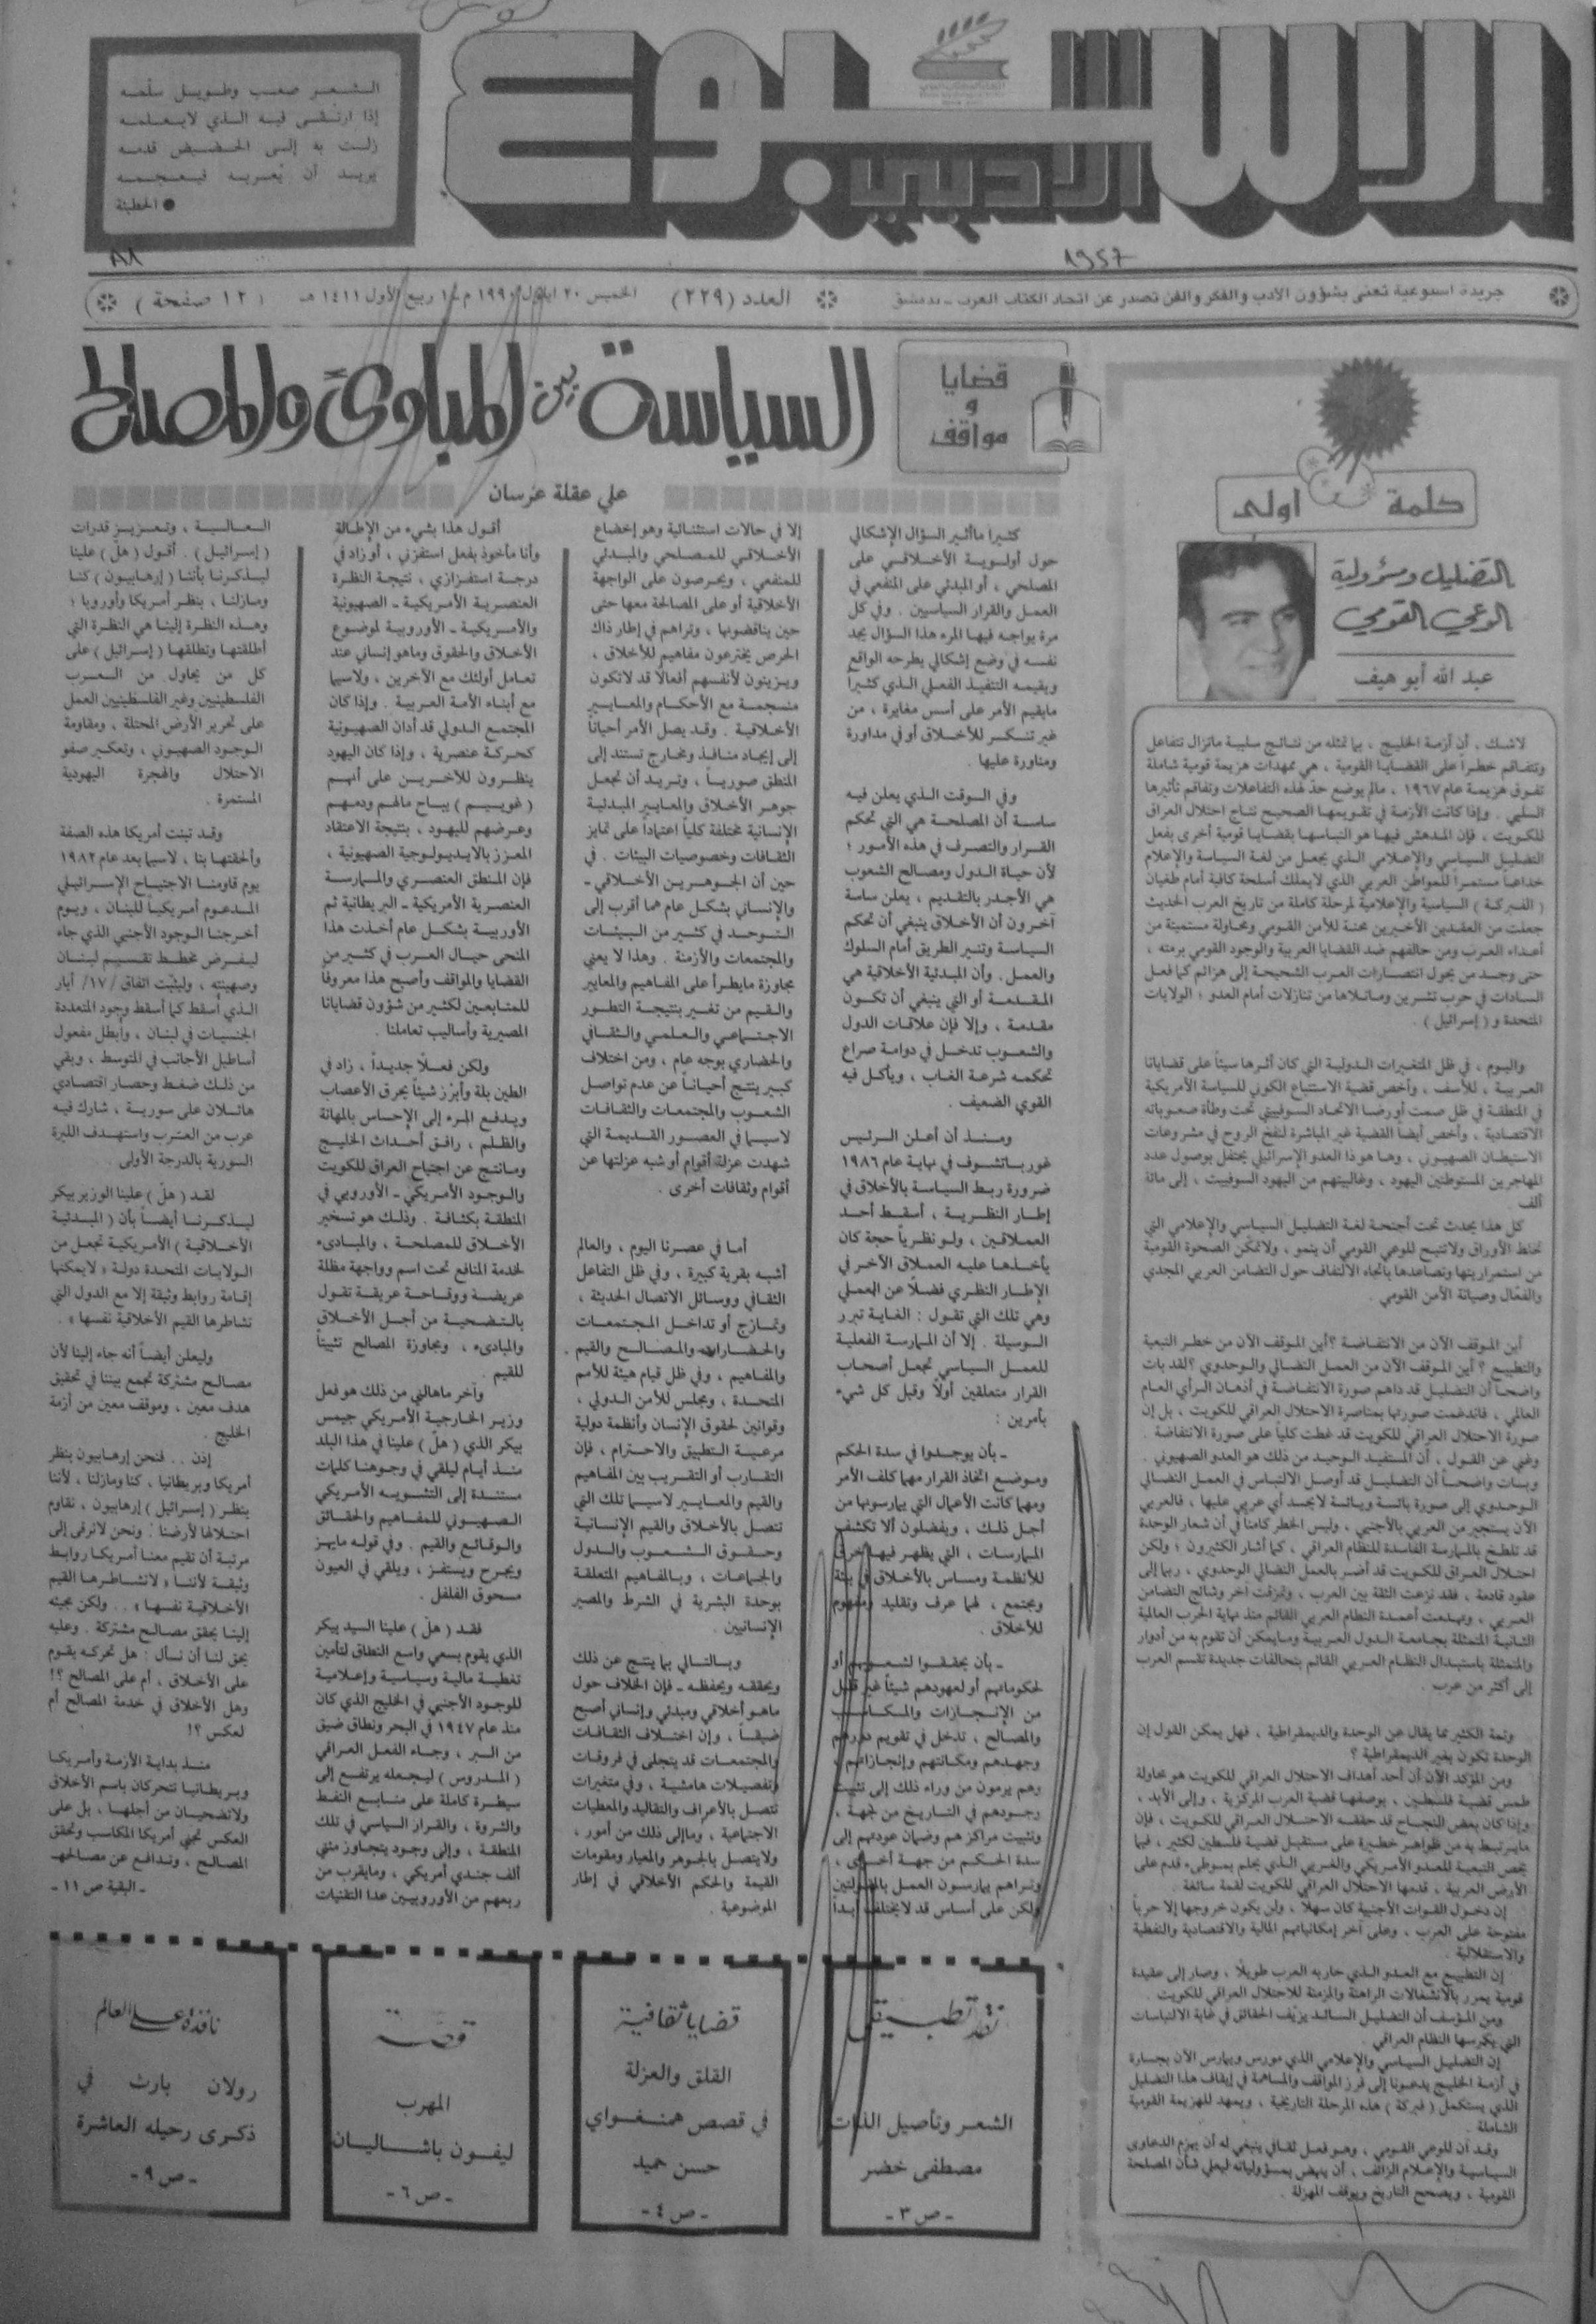 الأسبوع الأدبي
الشعر صعب وطويل سلمه
إذا ارتقى فيه الذي لايعلمه
زلت به إلى الحضيض قدمه
يريد أن يُعربه فيعجمه
● الحطيئة
جريدة اسبوعية تعنى بشؤون الأدب والفكر والفن تصدر عن اتحاد الكتاب العرب ـ بدمشق
العدد (٢٢٩)
الخميس ٢٠ ايلول ١٩٩٠ م
ربيع الأول ١٤١١ هـ
( ١٢ صفحة )
كلمة اولى
التضليل ومسؤولية
الوعي القومي
عبد الله أبو هيف
لاشك ، أن أزمة الخليج ، بما تمثله من نتائج سلبية ماتزال تتفاعل
وتتفاقم خطراً على القضايا القومية ، هي ممهدات هزيمة قومية شاملة
تفوق هزيمة عام ١٩٦٧ ، مالم يوضع حدّ لهذه التفاعلات وتفاقم تأثيرها
السلبي . وإذا كانت الأزمة في تقويمها الصحيح نتاج احتلال العراق
للكويت ، فإن المدهش فيها هو التباسها بقضايا قومية أخرى بفعل
التضليل السياسي والإعلامي الذي يجعل من لغة السياسة والإعلام
خداعاً مستمراً للمواطن العربي الذي لايملك أسلحة كافية أمام طغيان
( الفبركة ) السياسية والإعلامية لمرحلة كاملة من تاريخ العرب الحديث
جعلت من العقدين الأخيرين محنة للأمن القومي ومحاولة مستميتة من
أعداء العرب ومن حالفهم ضد القضايا العربية والوجود القومي برمته ،
حتى وجد من يحول انتصارات العرب الشحيحة إلى هزائم كما فعل
السادات في حرب تشرين وماتلاها من تنازلات أمام العدو ؛ الولايات
المتحدة و ( إسرائيل ) .
واليوم ، في ظل المتغيرات الدولية التي كان أثرها سيئاً على قضايانا
العربية ، للأسف ، وأخص قضية الاستتباع الكوني للسياسة الأمريكية
في المنطقة في ظل صمت أو رضا الاتحاد السوفييتي تحت وطأة صعوباته
الاقتصادية ، وأخص أيضاً القضية غير المباشرة لنفخ الروح في مشروعات
الاستيطان الصهيوني ، وها هو ذا العدو الإسرائيلي يحتفل بوصول عدد
المهاجرين المستوطنين اليهود ، وغالبيتهم من اليهود السوفييت ، إلى مائة
ألف .
كل هذا يحدث تحت أجنحة لغة التضليل السياسي والإعلامي التي
تخلط الأوراق ولاتتيح للوعي القومي أن ينمو ، ولاتمكّن الصحوة القومية
من استمراريتها وتصاعدها باتجاه الالتفاف حول التضامن العربي المجدي
والفعّال وصيانة الأمن القومي .
أين الموقف الآن من الانتفاضة ؟ أين الموقف الآن من خطر التبعية
والتطبيع ؟ أين الموقف الآن من العمل النضالي والوحدوي ؟ لقد بات
واضحاً أن التضليل قد داهم صورة الانتفاضة في أذهان الرأي العام
العالمي ، فاندغمت صورتها بمناصرة الاحتلال العراقي للكويت ، بل إن
صورة الاحتلال العراقي للكويت قد غطت كلياً على صورة الانتفاضة .
وغني عن القول ، أن المستفيد الوحيد من ذلك هو العدو الصهيوني .
وبات واضحاً أن التضليل قد أوصل الالتباس في العمل النضالي
الوحدوي إلى صورة بائسة ويائسة لايحسد أي عربي عليها ، فالعربي
الآن يستجير من العربي بالأجنبي ، وليس الخطر كامناً في أن شعار الوحدة
قد تلطخ بالممارسة الفاسدة للنظام العراقي ، كما أشار الكثيرون ؛ ولكن
احتلال العراق للكويت قد أضر بالعمل النضالي الوحدوي ، ربما إلى
عقود قادمة ، فقد نزعت الثقة بين العرب ، وتمزقت آخر وشائج التضامن
العربي ، وتهدمت أعمدة النظام العربي القائم منذ نهاية الحرب العالمية
الثانية المتمثلة بجامعة الدول العربية ومايمكن أن تقوم به من أدوار
والمتمثلة باستبدال النظام العربي القائم بتحالفات جديدة تقسم العرب
إلى أكثر من عرب .
وثمة الكثير مما يقال عن الوحدة والديمقراطية ، فهل يمكن القول إن
الوحدة تكون بغير الديمقراطية ؟
ومن المؤكد الآن أن أحد أهداف الاحتلال العراقي للكويت هو محاولة
طمس قضية فلسطين ، بوصفها قضية العرب المركزية ، وإلى الأبد ،
وإذا كان بعض النجاح قد حققه الاحتلال العراقي للكويت ، فإن
مايرتبط به من ظواهر خطيرة على مستقبل قضية فلسطين لكثير ، فيما
يخص التبعية للعدو الأمريكي والغربي الذي يحلم بموطىء قدم على
الأرض العربية ، قدمها الاحتلال العراقي للكويت لقمة سائغة .
إن دخول القوات الأجنبية كان سهلاً ، ولن يكون خروجها إلا حرباً
مفتوحة على العرب ، وعلى آخر إمكانياتهم المالية والاقتصادية والنفطية
والاستقلالية .
إن التطبيع مع العدو الذي حاربه العرب طويلاً ، وصار إلى عقيدة
قومية يمرر بالانشغالات الراهنة والمزمنة للاحتلال العراقي للكويت .
ومن المؤسف أن التضليل السائد يزيّف الحقائق في غاية الالتباسات
التي يكرسها النظام العراقي .
إن التضليل السياسي والإعلامي الذي مورس ويمارس الآن بجسارة
في أزمة الخليج يدعونا إلى فرز المواقف والمساهمة في إيقاف هذا التضليل
الذي يستكمل ( فبركة ) هذه المرحلة التاريخية ، ويمهد للهزيمة القومية
الشاملة .
وقد آن للوعي القومي ، وهو فعل ثقافي ينبغي له أن يهزم الدعاوى
السياسية والإعلام الزائف ، أن ينهض بمسؤولياته ليعلي شأن المصلحة
القومية ، ويصحح التاريخ ويوقف المهزلة .
قضايا
و
مواقف
السياسة بين المبادئ والمصالح
علي عقلة عرسان
كثيراً ماأثير السؤال الإشكالي
حول أولوية الأخلاقي على
المصلحي ، أو المبدئي على المنفعي في
العمل والقرار السياسيين . وفي كل
مرة يواجه فيها المرء هذا السؤال يجد
نفسه في وضع إشكالي يطرحه الواقع
ويقيمه التنفيذ الفعلي الذي كثيراً
مايقيم الأمر على أسس مغايرة ، من
غير تنكر للأخلاق أو في مداورة
ومناورة عليها .
وفي الوقت الذي يعلن فيه
ساسة أن المصلحة هي التي تحكم
القرار والتصرف في هذه الأمور ؛
لأن حياة الدول ومصالح الشعوب
هي الأجدر بالتقديم ، يعلن ساسة
آخرون أن الأخلاق ينبغي أن تحكم
السياسة وتنير الطريق أمام السلوك
والعمل. وأن المبدئية الأخلاقية هي
المقدمة أو التي ينبغي أن تكون
مقدمة ، وإلا فإن علاقات الدول
والشعوب تدخل في دوامة صراع
تحكمه شرعة الغاب ، ويأكل فيه
القوي الضعيف .
ومنذ أن أعلن الرئيس
غورباتشوف في نهاية عام ١٩٨٦
ضرورة ربط السياسة بالأخلاق في
إطار النظرية ، أسقط أحد
العملاقين ، ولو نظرياً حجة كان
يأخذها عليه العملاق الآخر في
الإطار النظري فضلاً عن العملي
وهي تلك التي تقول : الغاية تبرر
الوسيلة . إلا أن الممارسة الفعلية
للعمل السياسي تجعل أصحاب
القرار متعلقين أولاً وقبل كل شيء
بأمرين :
ـ بأن يوجدوا في سدة الحكم
وموضع اتخاذ القرار مهما كلف الأمر
ومهما كانت الأعمال التي يمارسونها من
أجل ذلك ، ويفضلون ألا تكشف
الممارسات ، التي يظهر فيها خرق
للأنظمة ومساس بالأخلاق في بيئة
ومجتمع ، لهما عرف وتقليد ومفهوم
للأخلاق .
ـ بأن يحققوا لشعوبهم أو
لحكوماتهم أو لعهودهم شيئاً غير قليل
من الإنجازات والمكاسب
والمصالح ، تدخل في تقويم دورهم
وجهدهم ومكانتهم وإنجازاتهم ،
وهم يرمون من وراء ذلك إلى تثبيت
وجودهم في التاريخ من جهة ،
وتثبيت مراكزهم وضمان عودتهم إلى
سدة الحكم من جهة أخرى ،
ونراهم يمارسون العمل
ولكن على أساس قد لايختلف أبداً
إلا في حالات استثنائية وهو إخضاع
الأخلاقي للمصلحي والمبدئي
للمنفعي ، ويحرصون على الواجهة
الأخلاقية أو على المصالحة معها حتى
حين يناقضونها ، ونراهم في إطار ذاك
الحرص يخترعون مفاهيم للأخلاق ،
ويزينون لأنفسهم أفعالاً قد لاتكون
منسجمة مع الأحكام والمعايير
الأخلاقية . وقد يصل الأمر أحياناً
إلى إيجاد منافذ ومخارج تستند إلى
المنطق صورياً ، وتريد أن تجعل
جوهر الأخلاق والمعايير المبدئية
الإنسانية مختلفة كلياً اعتماداً على تمايز
الثقافات وخصوصيات البيئات . في
حين أن الجوهرين الأخلاقي ـ
والإنساني بشكل عام هما أقرب إلى
التوحد في كثير من البيئات
والمجتمعات والأزمنة . وهذا لا يعني
مجاوزة مايطرأ على المفاهيم والمعايير
والقيم من تغير بنتيجة التطور
الاجتماعي والعلمي والثقافي
والحضاري بوجه عام ، ومن اختلاف
كبير ينتج أحياناً عن عدم تواصل
الشعوب والمجتمعات والثقافات
لاسيما في العصور القديمة التي
شهدت عزلة أقوام أو شبه عزلتها عن
أقوام وثقافات أخرى .
أما في عصرنا اليوم ، والعالم
أشبه بقرية كبيرة ، وفي ظل التفاعل
الثقافي ووسائل الاتصال الحديثة ،
وتمازج أو تداخل المجتمعات
والحضارات والمصالح والقيم .
والمفاهيم ، وفي ظل قيام هيئة للأمم
المتحدة ، ومجلس للأمن الدولي ،
وقوانين لحقوق الإنسان وأنظمة دولية
مرعية التطبيق والاحترام ، فإن
التقارب أو التقريب بين المفاهيم
والقيم والمعايير لاسيما تلك التي
تتصل بالأخلاق والقيم الإنسانية
وحقوق الشعوب والدول
والجماعات ، وبالمفاهيم المتعلقة
بوحدة البشرية في الشرط والمصير
الإنسانيين .
وبالتالي بما ينتج عن ذلك
ويحققه ويحفظه ـ فإن الخلاف حول
ماهو أخلاقي ومبدئي وإنساني أصبح
ضيقاً ، وإن اختلاف الثقافات
والمجتمعات قد يتجلى في فروقات
وتفصيلات هامشية ، وفي متغيرات
تتصل بالأعراف والتقاليد والمعطيات
الاجتماعية ، وماإلى ذلك من أمور ،
ولايتصل بالجوهر والمعيار ومقومات
القيمة والحكم الأخلاقي في إطار
الموضوعية .
أقول هذا بشيء من الإطالة
وأنا مأخوذ بفعل استفزني ، أو زاد في
درجة استفزازي ، نتيجة النظرة
العنصرية الأمريكية ـ الصهيونية
والأمريكية ـ الأوروبية لموضوع
الأخلاق والحقوق وماهو إنساني عند
تعامل أولئك مع الآخرين ، ولاسيما
مع أبناء الأمة العربية . وإذا كان
المجتمع الدولي قد أدان الصهيونية
كحركة عنصرية ، وإذا كان اليهود
ينظرون للآخرين على أنهم
( غوييم ) يباح مالهم ودمهم
وعرضهم لليهود ، بنتيجة الاعتقاد
المعزز بالايديولوجية الصهيونية ،
فإن المنطق العنصري والممارسة
العنصرية الأمريكية ـ البريطانية ثم
الأوربية بشكل عام أخذت هذا
المنحى حيال العرب في كثير من
القضايا والمواقف وأصبح هذا معروفاً
للمتابعين لكثير من شؤون قضايانا
المصيرية وأساليب تعاملنا .
ولكن فعلاً جديداً ، زاد في
الطين بلة وأبرز شيئاً يحرق الأعصاب
ويدفع المرء إلى الإحساس بالمهانة
والظلم ، رافق أحداث الخليج
ومانتج عن اجتياح العراق للكويت
والوجود الأمريكي ـ الأوروبي في
المنطقة بكثافة . وذلك هو تسخير
الأخلاق للمصلحة ، والمبادىء
لخدمة المنافع تحت اسم وواجهة مظلة
عريضة ووقاحة عريقة تقول
بالتضحية من أجل الأخلاق
والمبادىء ، ومجاوزة المصالح تثبيتاً
للقيم .
وآخر ماهالني من ذلك هو فعل
وزير الخارجية الأمريكي جيمس
بيكر الذي ( هلّ ) علينا في هذا البلد
منذ أيام ليلقي في وجوهنا كلمات
مستندة إلى التشويه الأمريكي
الصهيوني للمفاهيم والحقائق
والوقائع والقيم . وفي قوله مايهز
ويجرح ويستفز ، ويلقي في العيون
مسحوق الفلفل .
فقد ( هلّ ) علينا السيد بيكر
الذي يقوم بسعي واسع النطاق لتأمين
تغطية مالية وسياسية وإعلامية
للوجود الأجنبي في الخليج الذي كان
منذ عام ١٩٤٧ في البحر ونطاق ضيق
من البر ، وجاء الفعل العراقي
( المدروس ) ليجعله يرتفع إلى
سيطرة كاملة على منابع النفط
والثروة ، والقرار السياسي في تلك
المنطقة ، وإلى وجود يتجاوز مئتي
ألف جندي أمريكي ، ومايقرب من
ربعهم من الأوروبيين عدا التقنيات
العالية ، وتعزيز قدرات
( إسرائيل ) . أقول ( هلّ ) علينا
ليذكرنا بأننا ( إرهابيون ) كنا
ومازلنا ، بنظر أمريكا وأوروبا ؛
وهذه النظرة إلينا هي النظرة التي
أطلقتها وتطلقها ( إسرائيل ) على
كل من يحاول من العرب
الفلسطينيين وغير الفلسطينيين العمل
على تحرير الأرض المحتلة ، ومقاومة
الوجود الصهيوني ، وتعكير صفو
الاحتلال والهجرة اليهودية
المستمرة .
وقد تبنت أمريكا هذه الصفة
وألحقتها بنا ، لاسيما بعد عام ١٩٨٢
يوم قاومنا الاجتياح الإسرائيلي
المدعوم أمريكياً للبنان ، ويوم
أخرجنا الوجود الأجنبي الذي جاء
ليفرض مخطط تقسيم لبنان
وصهينته ، وليثبّت اتفاق /١٧/ أيار
الذي أسقط كما أسقط وجود المتعددة
الجنسيات في لبنان ، وأبطل مفعول
أساطيل الأجانب في المتوسط ، وبقي
من ذلك ضغط وحصار اقتصادي
هائلان على سورية ، شارك فيه
عرب من العرب واستهدف الليرة
السورية بالدرجة الأولى .
لقد ( هلّ ) علينا الوزير بيكر
ليذكرنا أيضاً بأن ( المبدئية
الأخلاقية ) الأمريكية تجعل من
الولايات المتحدة دولة « لايمكنها
إقامة روابط وثيقة إلا مع الدول التي
تشاطرها القيم الأخلاقية نفسها » .
وليعلن أيضاً أنه جاء إلينا لأن
مصالح مشتركة تجمع بيننا في تحقيق
هدف معين ، وموقف معين من أزمة
الخليج .
إذن .. فنحن إرهابيون بنظر
أمريكا وبريطانيا ، كنا ومازلنا ، لأننا
بنظر ( إسرائيل ) إرهابيون ، نقاوم
احتلالها لأرضنا : ونحن لانرقى إلى
مرتبة أن تقيم معنا أمريكا روابط
وثيقة لأننا « لانشاطرها القيم
الأخلاقية نفسها » .. ولكن مجيئه
إلينا يحقق مصالح مشتركة . وعليه
يحق لنا أن نسأل : هل تحركه يقوم
على الأخلاق ، أم على المصالح ؟!
وهل الأخلاق في خدمة المصالح أم
لعكس ؟!
منذ بداية الأزمة وأمريكا
وبريطانيا تتحركان باسم الأخلاق
ولاتضحيان من أجلها ، بل على
العكس تجني أمريكا المكاسب وتحقق
المصالح ، وتدافع عن مصالحها
ـ البقية ص ١١ ـ
نقد تطبيقي
الشعر وتأصيل الذات
مصطفى خضر
ـ ص ٣ ـ
قضايا ثقافية
القلق والعزلة
في قصص همنغواي
حسن حميد
ـ ص ٤ ـ
قصة
المهرب
ليفون باشاليان
ـ ص ٦ ـ
نافذة على العالم
رولان بارت في
ذكرى رحيله العاشرة
ـ ص ٩ ـ